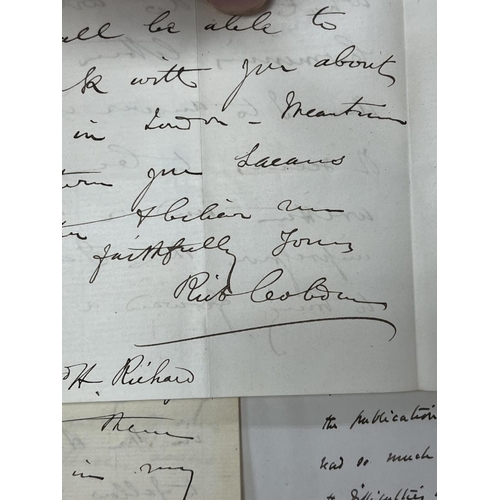 all be able to
k with you about
in London - Meantime
you
& believe me
faithfully Yours
Richd Cobden
H. Richard
them
in my
the publication
had so much
to difficulties